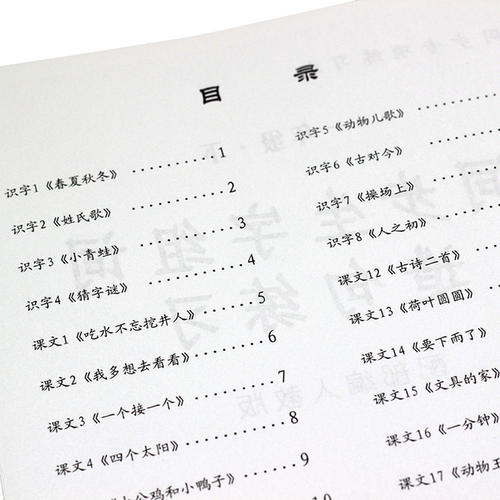 目 录
识字1《春夏秋冬》··········1
识字2《姓氏歌》··········2
识字3《小青蛙》··········3
识字4《猜字谜》··········4
课文1《吃水不忘挖井人》·······5
课文2《我多想去看看》········6
课文3《一个接一个》·········7
课文4《四个太阳》··········8
公鸡和小鸭子》··········9
10
识字5《动物儿歌》··········
识字6《古对今》··········
识字7《操场上》··········
识字8《人之初》··········
课文12《古诗二首》·······
课文13《荷叶圆圆》······
课文14《要下雨了》·····
课文15《文具的家》····
课文16《一分钟》····
课文17《动物王